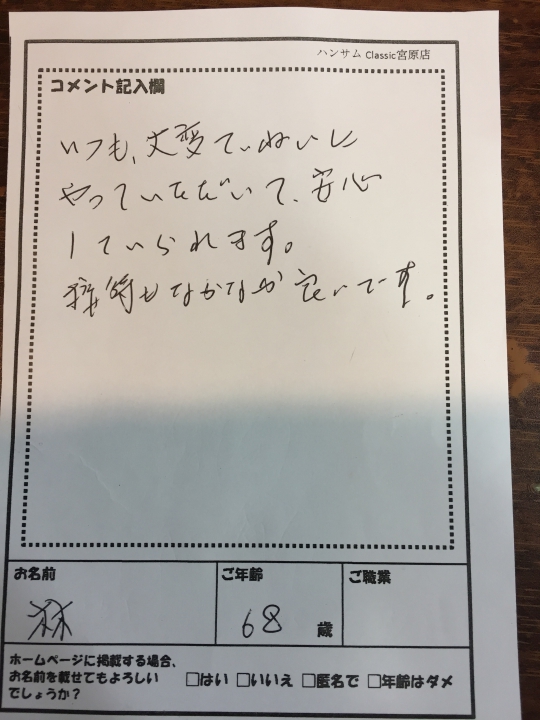 ハンサム Classic宮原店
コメント記入欄
いつも、大変ていねいに
やっていただいて、安心
していられます。
接待もなかなか良いです。
お名前
ご年齢
ご職業
林
68 歳
ホームページに掲載する場合、
お名前を載せてもよろしい
でしょうか?
□はい □いいえ □匿名で □年齢はダメ